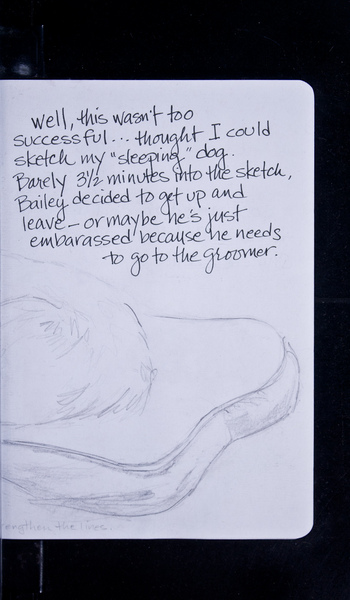 well, this wasn't too
successful... thought I could
sketch my "sleeping" dog.
Barely 3½ minutes into the sketch,
Bailey decided to get up and
leave – or maybe he's just
embarassed because he needs
to go to the groomer.
the lines.